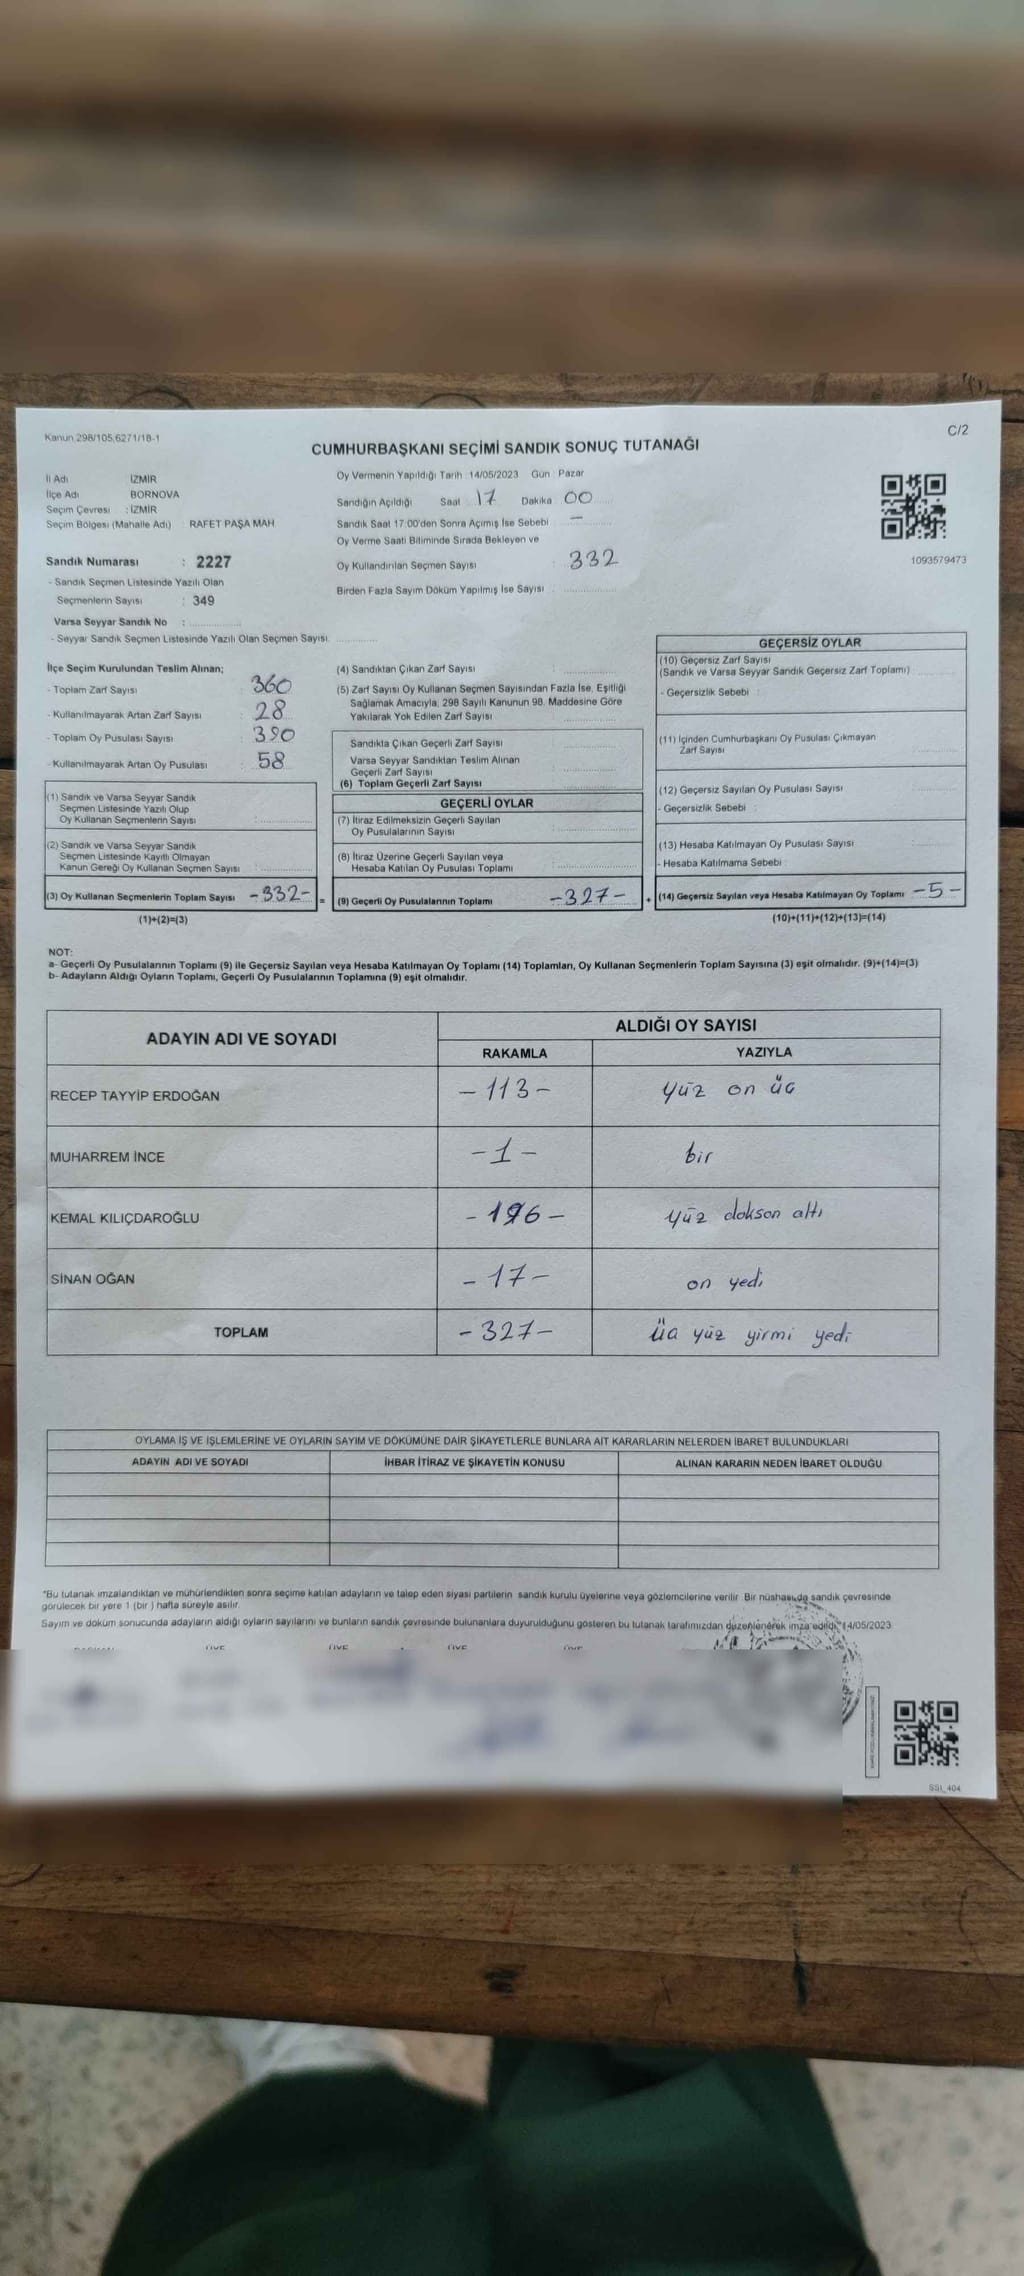 Kanun 298/105,6271/18-1
C/2
CUMHURBAŞKANI SEÇİMİ SANDIK SONUÇ TUTANAĞI
İl Adı : İZMİR
İlçe Adı : BORNOVA
Seçim Çevresi : İZMİR
Seçim Bölgesi (Mahalle Adı) : RAFET PAŞA MAH
Sandık Numarası : 2227
- Sandık Seçmen Listesinde Yazılı Olan
Seçmenlerin Sayısı : 349
Varsa Seyyar Sandık No :
- Seyyar Sandık Seçmen Listesinde Yazılı Olan Seçmen Sayısı:
Oy Vermenin Yapıldığı Tarih :14/05/2023 Gün : Pazar
Sandığın Açıldığı Saat 17 Dakika 00
Sandık Saat 17:00'den Sonra Açımış İse Sebebi : —
Oy Verme Saati Bitiminde Sırada Bekleyen ve
Oy Kullandırılan Seçmen Sayısı : 332
Birden Fazla Sayım Döküm Yapılmış İse Sayısı :
1093579473
İlçe Seçim Kurulundan Teslim Alınan;
- Toplam Zarf Sayısı : 360
- Kullanılmayarak Artan Zarf Sayısı : 28
- Toplam Oy Pusulası Sayısı : 390
- Kullanılmayarak Artan Oy Pusulası : 58
(1) Sandık ve Varsa Seyyar Sandık
Seçmen Listesinde Yazılı Olup
Oy Kullanan Seçmenlerin Sayısı :
(2) Sandık ve Varsa Seyyar Sandık
Seçmen Listesinde Kayıtlı Olmayan
Kanun Gereği Oy Kullanan Seçmen Sayısı :
(3) Oy Kullanan Seçmenlerin Toplam Sayısı -332- =
(1)+(2)=(3)
(4) Sandıktan Çıkan Zarf Sayısı :
(5) Zarf Sayısı Oy Kullanan Seçmen Sayısından Fazla İse, Eşitliği
Sağlamak Amacıyla; 298 Sayılı Kanunun 98. Maddesine Göre
Yakılarak Yok Edilen Zarf Sayısı :
Sandıkta Çıkan Geçerli Zarf Sayısı :
Varsa Seyyar Sandıktan Teslim Alınan
Geçerli Zarf Sayısı :
(6) Toplam Geçerli Zarf Sayısı :
GEÇERLİ OYLAR
(7) İtiraz Edilmeksizin Geçerli Sayılan
Oy Pusulalarının Sayısı :
(8) İtiraz Üzerine Geçerli Sayılan veya
Hesaba Katılan Oy Pusulası Toplamı :
(9) Geçerli Oy Pusulalarının Toplamı -327- +
GEÇERSİZ OYLAR
(10) Geçersiz Zarf Sayısı
(Sandık ve Varsa Seyyar Sandık Geçersiz Zarf Toplamı) :
- Geçersizlik Sebebi :
(11) İçinden Cumhurbaşkanı Oy Pusulası Çıkmayan
Zarf Sayısı :
(12) Geçersiz Sayılan Oy Pusulası Sayısı :
- Geçersizlik Sebebi :
(13) Hesaba Katılmayan Oy Pusulası Sayısı :
- Hesaba Katılmama Sebebi :
(14) Geçersiz Sayılan veya Hesaba Katılmayan Oy Toplamı -5-
(10)+(11)+(12)+(13)=(14)
NOT:
a- Geçerli Oy Pusulalarının Toplamı (9) ile Geçersiz Sayılan veya Hesaba Katılmayan Oy Toplamı (14) Toplamları, Oy Kullanan Seçmenlerin Toplam Sayısına (3) eşit olmalıdır. (9)+(14)=(3)
b- Adayların Aldığı Oyların Toplamı, Geçerli Oy Pusulalarının Toplamına (9) eşit olmalıdır.
ADAYIN ADI VE SOYADI ALDIĞI OY SAYISI
RAKAMLA YAZIYLA
RECEP TAYYİP ERDOĞAN -113- yüz on üç
MUHARREM İNCE -1- bir
KEMAL KILIÇDAROĞLU -196- yüz doksan altı
SİNAN OĞAN -17- on yedi
TOPLAM -327- üç yüz yirmi yedi
OYLAMA İŞ VE İŞLEMLERİNE VE OYLARIN SAYIM VE DÖKÜMÜNE DAİR ŞİKAYETLERLE BUNLARA AİT KARARLARIN NELERDEN İBARET BULUNDUKLARI
ADAYIN ADI VE SOYADI İHBAR İTİRAZ VE ŞİKAYETİN KONUSU ALINAN KARARIN NEDEN İBARET OLDUĞU
*Bu tutanak imzalandıktan ve mühürlendikten sonra seçime katılan adayların ve talep eden siyasi partilerin sandık kurulu üyelerine veya gözlemcilerine verilir. Bir nüshası da sandık çevresinde
görülecek bir yere 1 (bir) hafta süreyle asılır.
Sayım ve döküm sonucunda adayların aldığı oyların sayılarını ve bunların sandık çevresinde bulunanlara duyurulduğunu gösteren bu tutanak tarafımızdan düzenlenerek imza edildi. 14/05/2023
ÜYE ÜYE ÜYE ÜYE
SSİ_404